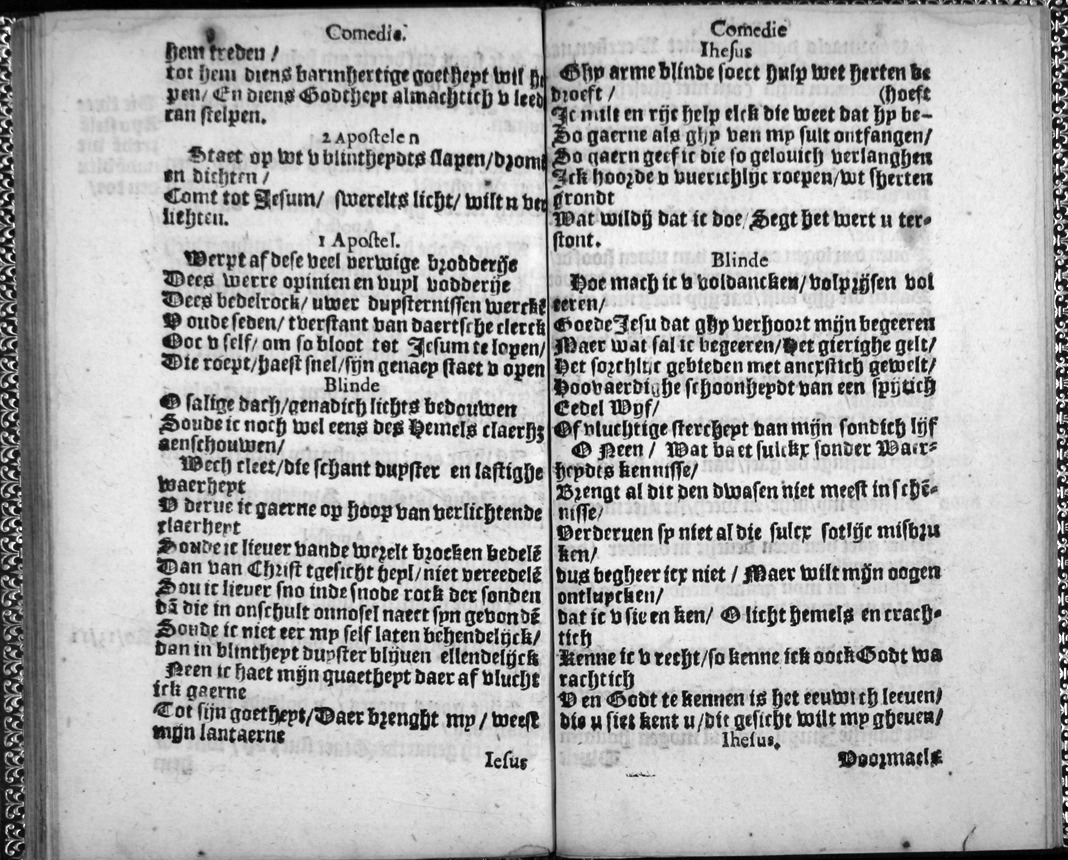 Comedie.
hem treden /
tot hem diens barmhertige goetheyt wil he
pen/ En diens Godtheyt almachtich v leed
can stelpen.
2 Apostelen
Staet op wt v blintheydts slapen/drome
en dichten /
Comt tot Jesum/ swerelts licht/ wilt u ver
lichten.
1 Apostel.
Werpt af dese veel verwige brodderije
Dees werre opinien en vuyl vodderije
Dees bedelrock/ uwer duysternissen wercke
V oude seden/ tverstant van daertsche clerck
Ooc v self/ om so bloot tot Jesum te lopen/
Die roept/haest snel/sijn genaep staet v open
Blinde
O salige dach/genadich lichts bedouwen
Soude ic noch wel eens des Hemels claerhz
aenschouwen/
Wech cleet/die schant duyster en lastighe
waerheyt
V derue ic gaerne op hoop van verlichtende
claerheyt
Soude ic liever vande werelt brocken bedelē
Dan van Christ tgesicht heyl/niet vereedelē
Sou ic liever sno inde snode rock der sonden
dā die in onschult onnosel naect syn gevondē
Soude ic niet eer my self laten behendelijck/
dan in blintheyt duyster blijuen ellendelijck
Neen ic haet mijn quaetheyt daer af vlucht
ick gaerne
Tot sijn goetheyt/Daer brenght my / weest
mijn lantaerne
Iesus
Comedie
Ihesus
Ghy arme blinde soect hulp wet herten be
droeft / (hoeft
Ic milt en rijc help elck die weet dat hy be-
So gaerne als ghy van my sult ontfangen/
So gaern geef ic die so gelouich verlanghen
Ick hoorde v vuerichlijc roepen/wt sherten
grondt
Wat wildij dat ic doe/ Segt het wert u ter-
stont.
Blinde
Hoe mach ic v voldancken/volprijsen vol
eeren/
Goede Jesu dat ghy verhoort mijn begeeren
Maer wat sal ic begeeren/Het gierighe gelt/
Het sorchlijc gebieden met ancxstich gewelt/
Hoovaerdighe schoonheydt van een spijtich
Eedel Wyf/
Of vluchtige stercheyt van mijn sondich lijf
O Neen / Wat baet sulckx sonder Waer-
heydts kennisse/
Brengt al dit den dwasen niet meest in schē-
nisse/
Verderuen sy niet al die sulcx sotlijc misbru
ken/
dus begheer icx niet / Maer wilt mijn oogen
ontluycken/
dat ic v sie en ken/ O licht hemels en crach-
tich
Kenne ic v recht/so kenne ick oock Godt wa
rachtich
V en Godt te kennen is het eeuwich leeuen/
die u siet kent u/dit gesicht wilt my gheuen/
Ihesus.
Voormaels